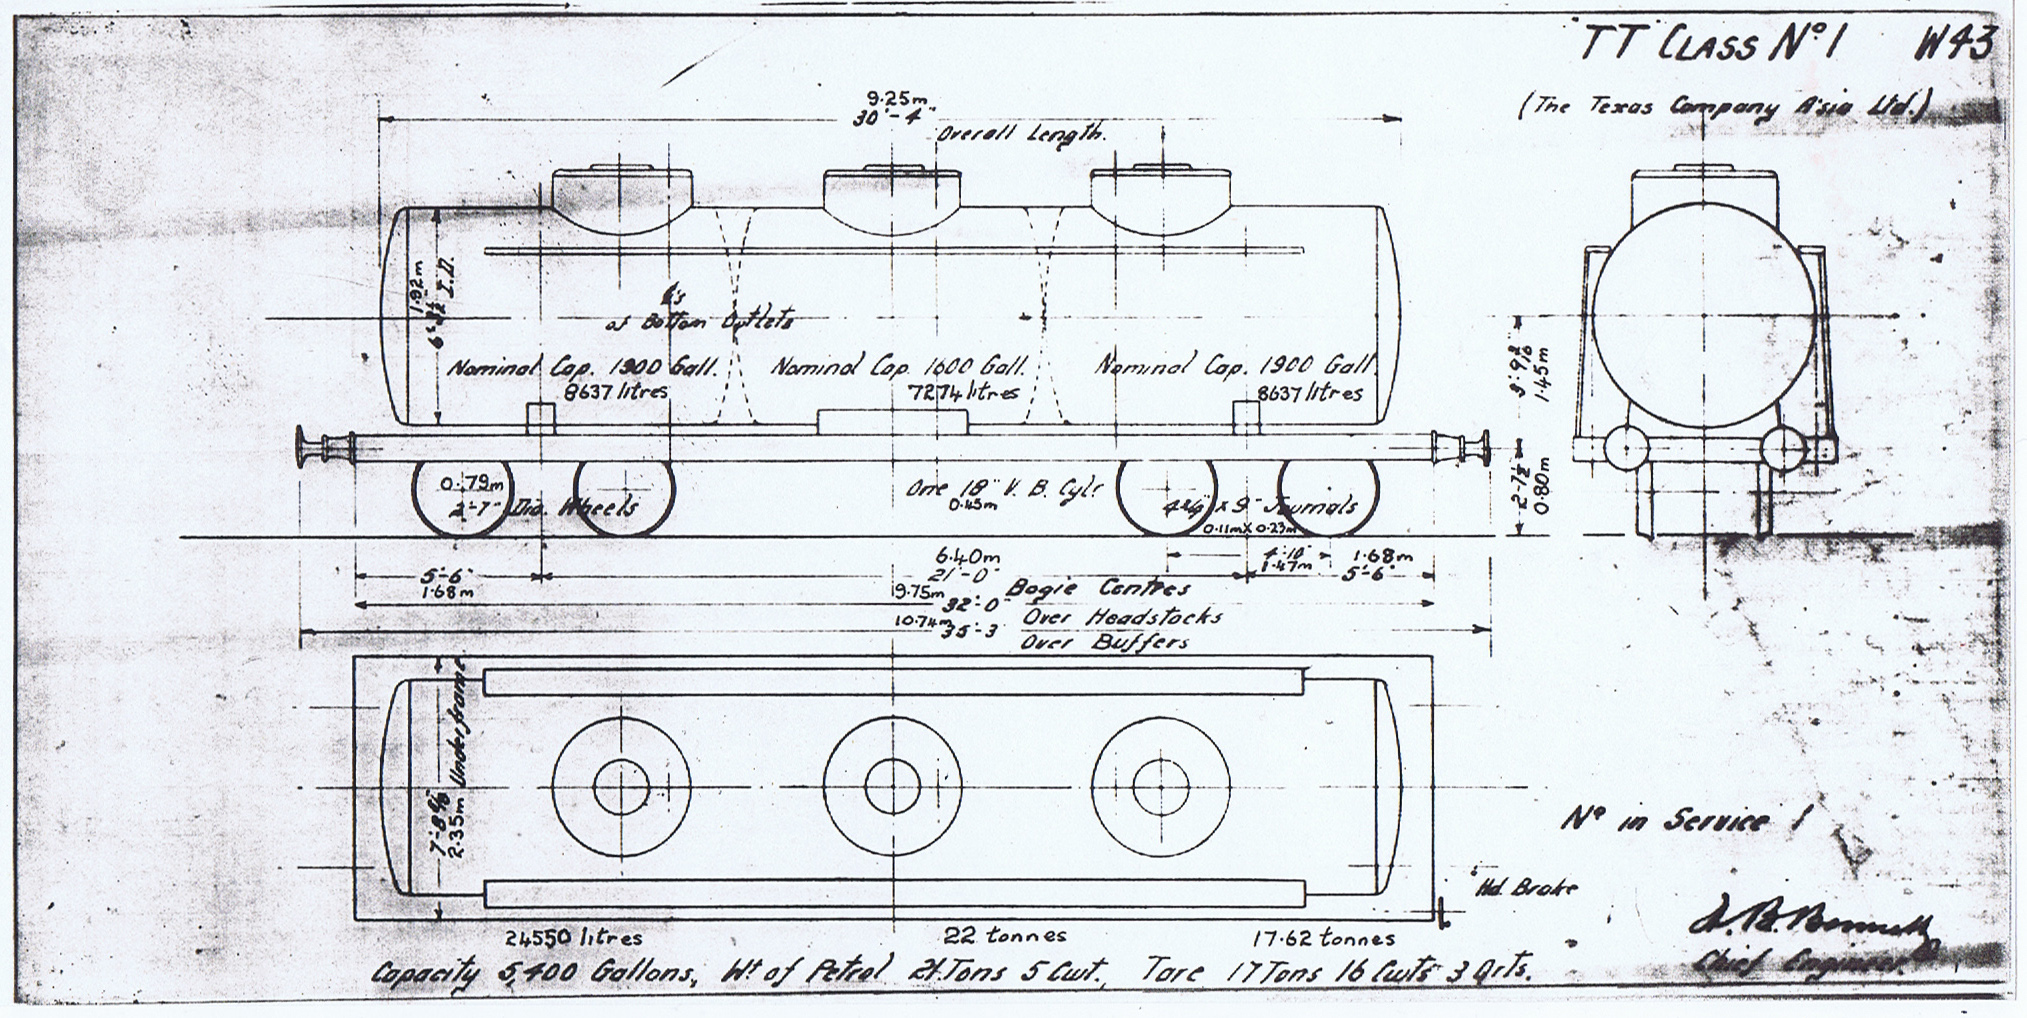 "TT" CLASS Nº 1 W43
(The Texas Company Asia Ltd.)
9.25m
30'-4"
Overall Length.
1.92m
I.D.
¢'s
of Bottom Outlets
Nominal Cap. 1900 Gall.
8637 litres
Nominal Cap. 1600 Gall.
7274 litres
Nominal Cap. 1900 Gall.
8637 litres
1.45m
2'-7½"
0.80m
0.79m
2'-7" Dia. Wheels
One 18" V. B. Cylr
0.45m
4¼" x 9" Journals
0.11m x 0.23m
5'-6"
1.68m
6.40m
21'-0"
Bogie Centres
4'-10"
1.47m
1.68m
5'-6"
9.75m
32'-0"
Over Headstocks
10.74m
35'-3"
Over Buffers
Underframe
2.35m
Nº in Service 1
Hd. Brake
24550 litres 22 tonnes 17.62 tonnes
Capacity 5,400 Gallons, Wt of Petrol 21 Tons 5 Cwt., Tare 17 Tons 16 Cwts 3 Qrts.
Chief Engineer